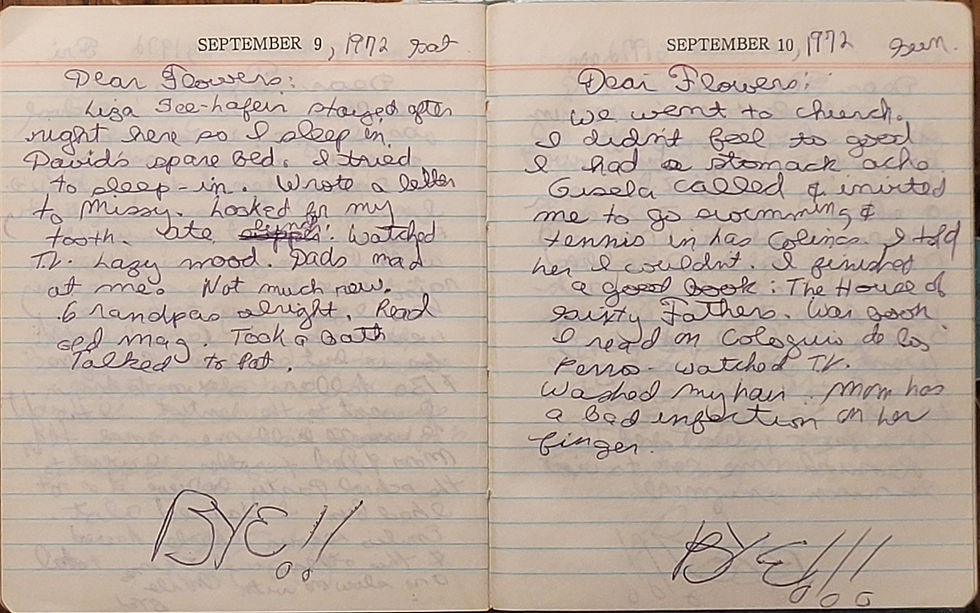 SEPTEMBER 9, 1972 Sat.
Dear Flowers:
Liza See-hafen stayed after
night here so I sleep in
Davids spare bed. I tried
to sleep-in. Wrote a letter
to Missy. Looked for my
tooth. Ate dinner. Watched
T.V. Lazy mood. Dads mad
at me. Not much new.
Grandpas alright. Read
mag. Took a Bath
Talked to Pat.
BYE!!
SEPTEMBER 10, 1972 Sun.
Dear Flowers:
We went to church.
I didn't feel to good
I had a stomack ache
Gisela called & invited
me to go swimming &
tennis in has Colinas. I told
her I couldn't. I finished
a good book: The House of
Sixty Fathers. Was good.
I read on Coloquio de los
Perros - watched T.V.
Washed my hair. Mom has
a Bad infection on her
finger.
BYE!!!